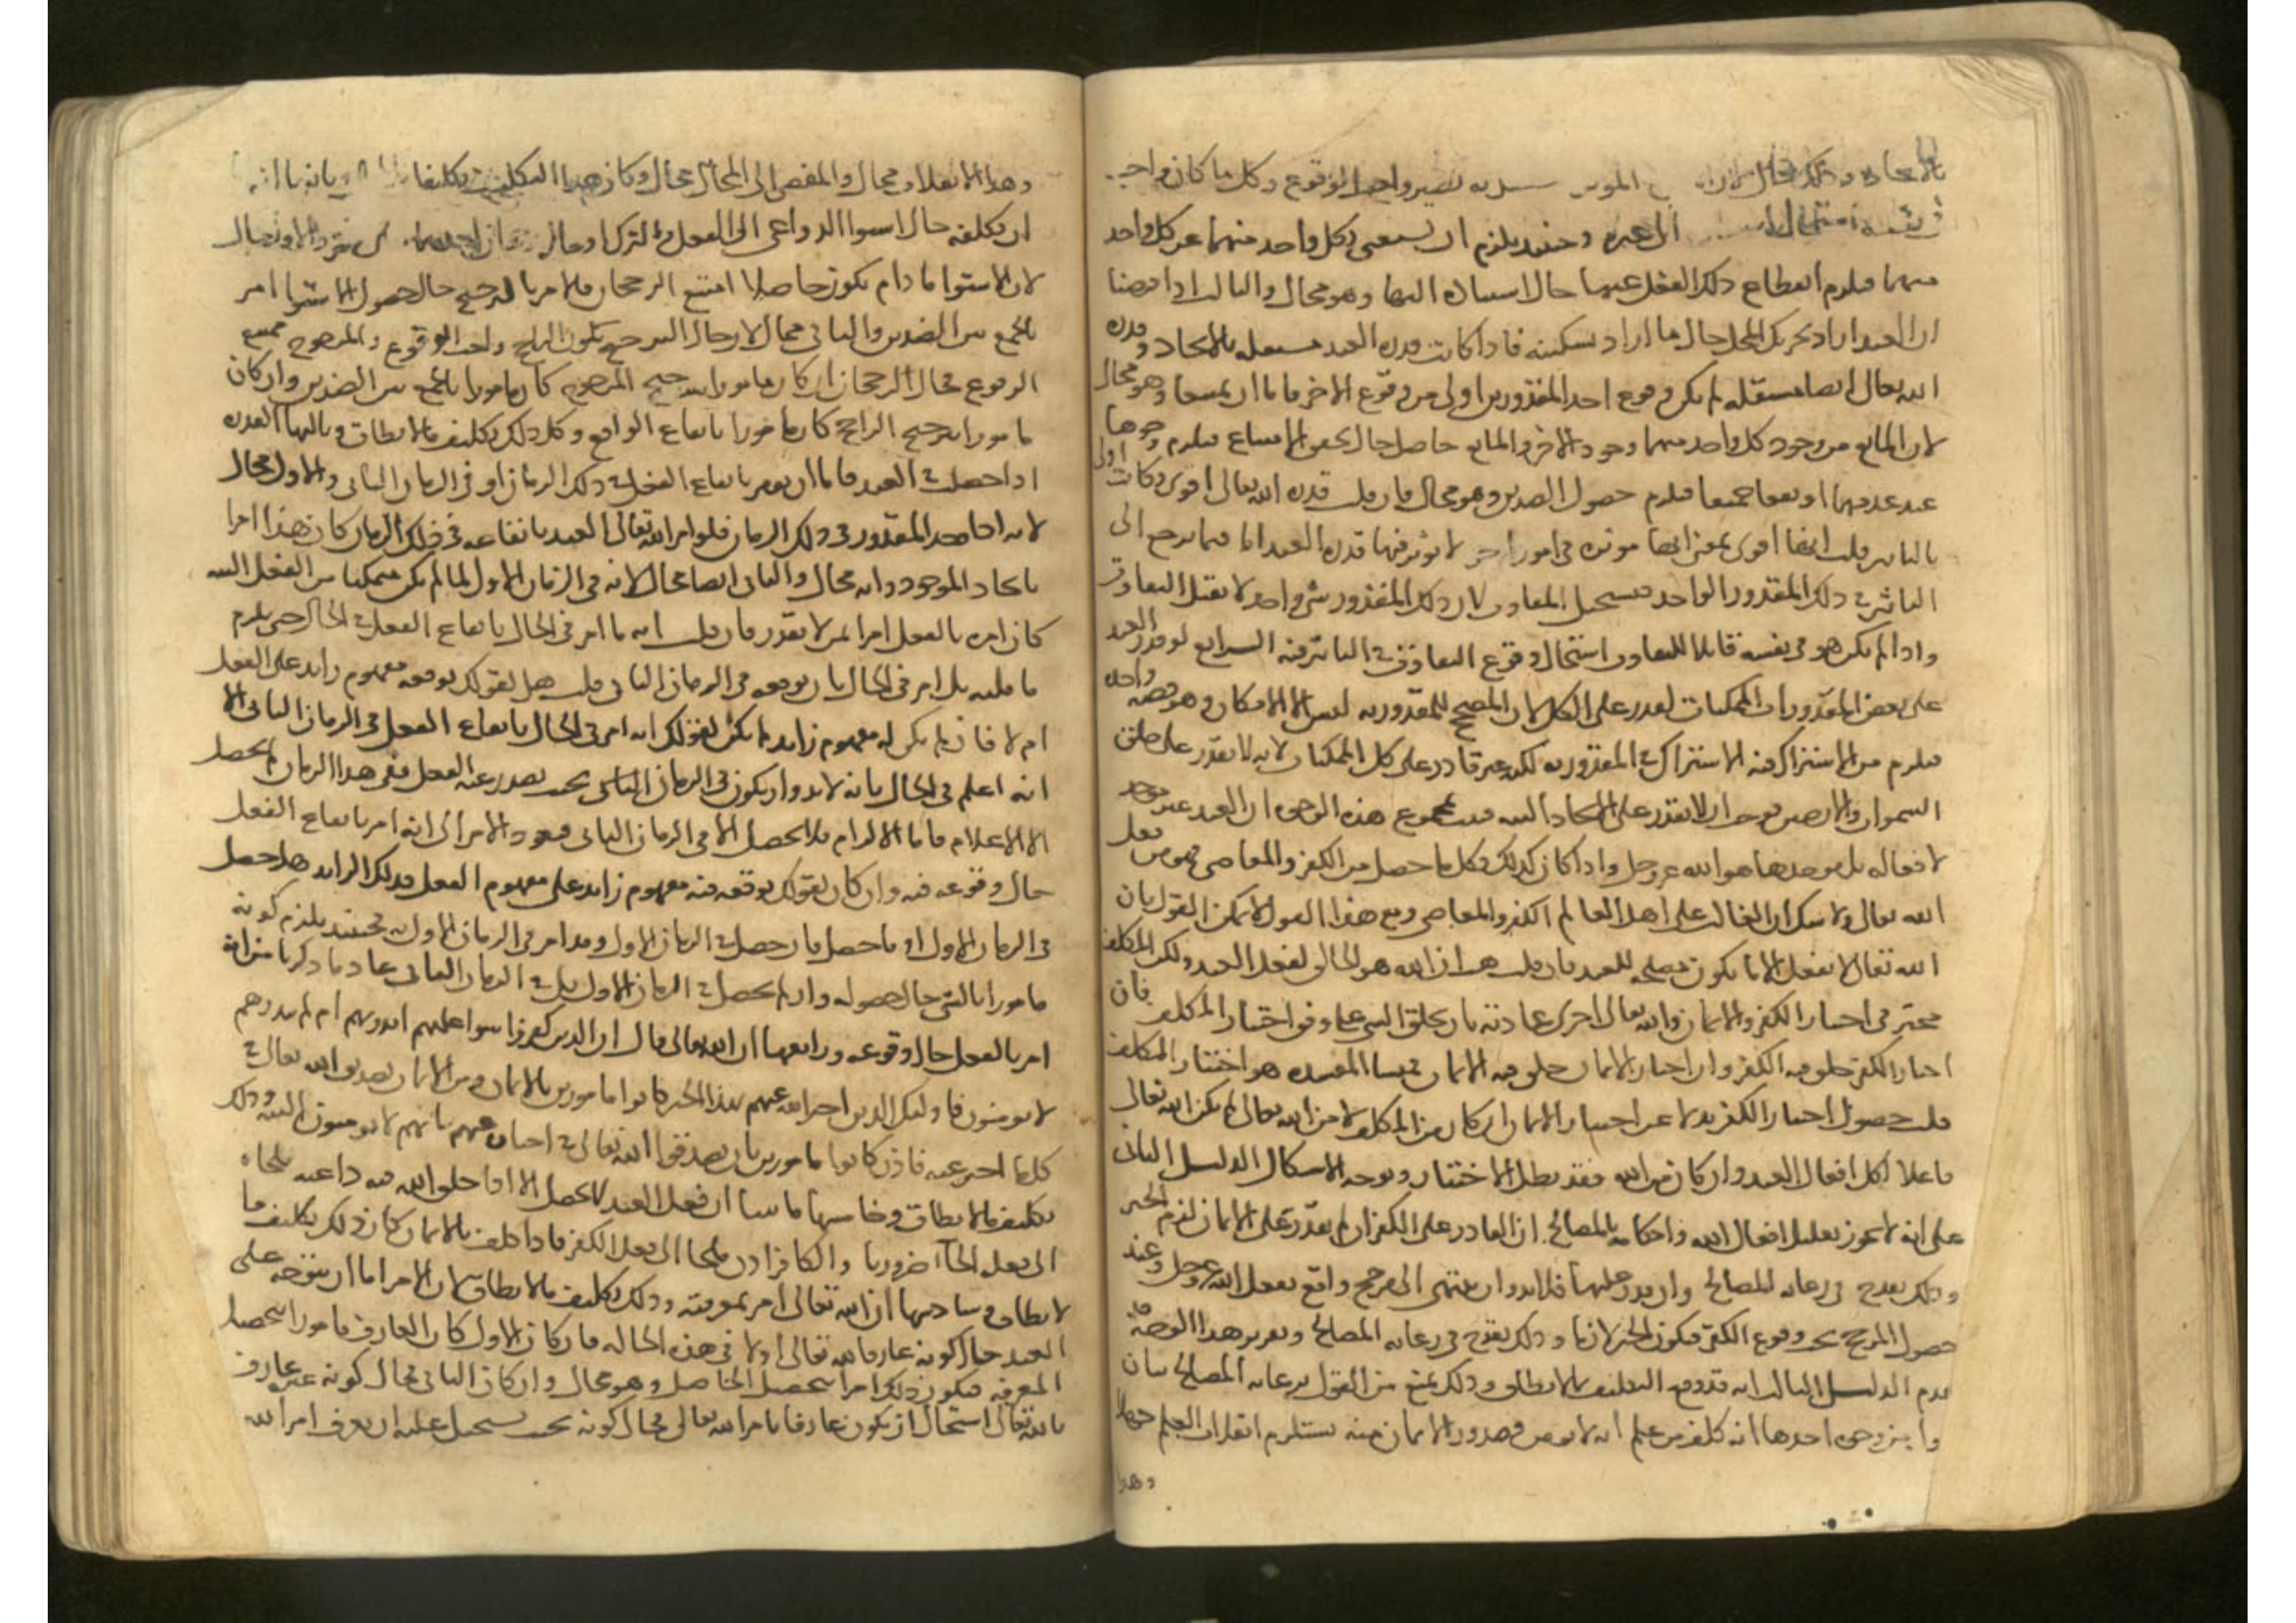 بالايجاد وذلك محال لان المؤثر يصير واجب الوقوع وكل ما كان واجبا
استحال الى غيره وحينئذ يلزم ان يستغنى بكل واحد منهما عن كل واحد
منهما فيلزم انقطاع ذلك الفعل عنهما حال استناده اليهما وهو محال والثالث اذا فرضنا
ان العبد اراد تحريك المحل حال ما اراد تسكينه فاذا كانت قدرة العبد مستقلة بالايجاد وقدرة
الله تعالى ايضا مستقلة لم يكن وقوع احد المقدورين اولى من وقوع الاخر فاما ان يمتنعا وهو محال
لان المانع من وجود كل واحد منهما وجود الاخر والمانع حاصل حال تحقق الامتناع فيلزم وجودهما
عند عدمهما او يقعا جميعا فيلزم حصول الضدين وهو محال فان قلت قدرة الله تعالى اقوى وكانت اولى
بالتاثير قلت انها اقوى بمعنى انها موثرة في امور اخر لا يوثر فيها قدرة العبد اما فيما يرجع الى
التاثير في ذلك المقدور الواحد فيستحيل التفاوت لان ذلك المقدور شي واحد لا يقبل التفاوت
واذا لم يكن هو في نفسه قابلا للتفاوت استحال وقوع التفاوت في التاثير فيه الرابع لو قدر العبد
على بعض المقدورات الممكنات لقدر على الكل لان المصحح للمقدورية ليس الا الامكان وهو قضية واحدة
فيلزم من الاشتراك فيه الاشتراك في المقدورية لكنه غير قادر على كل الممكنات لانه لا يقدر على خلق
السموات والارضين فوجب ان لا يقدر على الايجاد البته فثبت بمجموع هذه الوجوه ان العبد غير موجد
لافعاله بل موجدها هو الله عز وجل واذا كان كذلك فكل ما حصل من الكفر والمعاصي فهو من فعل
الله تعالى ولا شك ان الغالب على اهل العالم الكفر والمعاصي ومع هذا القول لا يمكن القول بان
الله تعالى لا يفعل الا ما يكون مصلحه للعبد فان قلت هب ان الله هو الخالق لفعل العبد ولكن المكلف
مخير في اختيار الكفر والايمان والله تعالى اجرى عادته بان يخلق الشي على وفق اختيار المكلف فان
اختار الكفر خلق فيه الكفر وان اختار الايمان خلق فيه الايمان فمنشا المفسده هو اختيار المكلف
قلت حصول اختيار الكفر بدلا عن اختيار الايمان ان كان من المكلف لا من الله تعالى لم يكن الله تعالى
فاعلا لكل افعال العبد وان كان من الله فقد بطل الاختيار وتوجه الاشكال الدليل الثاني
على انه لا يجوز تعليل افعال الله واحكامه بالمصالح ان القادر على الكفر ان لم يقدر على الايمان لزم الجبر
وذلك يقدح في رعاية المصالح وان قدر عليهما فلا بد وان ينتهي الى مرجح واقع بفعل الله عز وجل وعند
حصول المرجح يجب وقوع الكفر فيكون الجبر لازما وذلك يقدح في رعاية المصالح وتقرير هذا الوجه قد
تقدم الدليل الثالث انه قد وقع التكليف بما لا يطاق وذلك يمنع من القول برعاية المصالح بيان
وجوه احدها انه كلف من علم انه لا يومن وصدور الايمان منه يستلزم انقلاب العلم جهلا
وهذا
وهذا الانقلاب محال والمفضي الى المحال محال وكان هذا التكليف تكليفا وثانيها انه
ان كلفه حال استوا الدواعي الى الفعل والترك او حال رجحان احدهما فالاول محال
لان الاستوا ما دام يكون حاصلا امتنع الرجحان فالامر بالترجيح حال حصول الاستوا امر
بالجمع بين الضدين والثاني محال لان حال الترجيح يكون الراجح واجب الوقوع والمرجوح ممتنع
الوقوع فحال الرجحان ان كان مامورا بترجيح المرجوح كان مامورا بالجمع بين الضدين وان كان
مامورا بترجيح الراجح كان مامورا بايقاع الواقع وكل ذلك تكليف ما لا يطاق وثالثها القدرة
اذا حصلت في العبد فاما ان يومر بايقاع الفعل في ذلك الزمان او في الزمان الثاني والاول محال
لانه اذا وجد المقدور في ذلك الزمان فلو امر الله تعالى العبد بايقاعه في ذلك الزمان كان هذا امرا
بايجاد الموجود وانه محال والثاني ايضا محال لانه في الزمان الاول لما لم يكن متمكنا من الفعل البته
كان امره بالفعل امرا لمن لا يقدر فان قلت انه ما امر في الحال بايقاع الفعل في الحال حتى يلزم
ما قلته بل امر في الحال بان يوقعه في الزمان الثاني قلت هل لقولك يوقعه مفهوم زايد على الفعل
ام لا فان لم يكن له مفهوم زايد لم يكن لقولك انه امر في الحال بايقاع الفعل في الزمان الثاني الا
انه اعلم في الحال بانه لا بد وان يكون في الزمان الثاني بحيث يصدر عنه الفعل ففي هذا الزمان لم يحصل
الا الاعلام فاما الالزام فلا يحصل الا في الزمان الثاني فيعود الامر الى انه امر بايقاع الفعل
حال وقوعه فيه وان كان لقولك يوقعه فيه مفهوم زايد على مفهوم الفعل فذلك الزايد هل حصل
في الزمان الاول او ما حصل فان حصل في الزمان الاول وقد امر في الزمان الاول به فحينئذ يلزم كونه
مامورا بالشي حال حصوله وان لم يحصل في الزمان الاول بل في الزمان الثاني عاد ما ذكرنا من انه
امر بالفعل حال وقوعه ورابعها ان الله تعالى قال ان الذين كفروا سوا عليهم اانذرتهم ام لم تنذرهم
لا يومنون فاولئك الذين اخبر الله عنهم بهذا الخبر كانوا مامورين بالايمان ومن الايمان تصديق الله تعالى في
كل ما اخبر عنه فاذن كانوا مامورين بان يصدقوا الله تعالى في اخباره عنهم بانهم لا يومنون البته وذلك
تكليف ما لا يطاق وخامسها ما بينا ان فعل العبد لا يحصل الا اذا خلق الله فيه داعية تلجاه
الى فعله الجآ ضروريا والكافر اذن ملجا الى فعل الكفر فاذا كلف بالايمان كان ذلك تكليف ما
لا يطاق وسادسها ان الله تعالى امر بمعرفته وذلك تكليف ما لا يطاق لان الامر اما ان يتوجه على
العبد حال كونه عارفا بالله تعالى او لا في هذه الحاله فان كان الاول كان العارف مامورا بتحصيل
المعرفه فيكون ذلك امرا بتحصيل الحاصل وهو محال وان كان الثاني فحال كونه غير عارف
بالله تعالى استحال ان يكون عارفا بامر الله تعالى فحال كونه بحيث يستحيل عليه ان يعرف امر الله